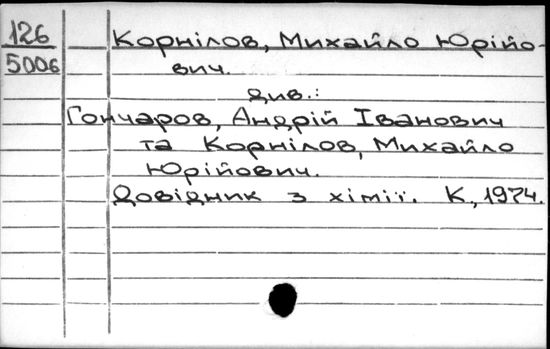 126
5006
Корнілов, Михайло Юрійо-
вич.
див.:
Гончаров, Андрій Іванович
та Корнілов, Михайло
Юрійович.
Довідник з хімії. К., 1974.